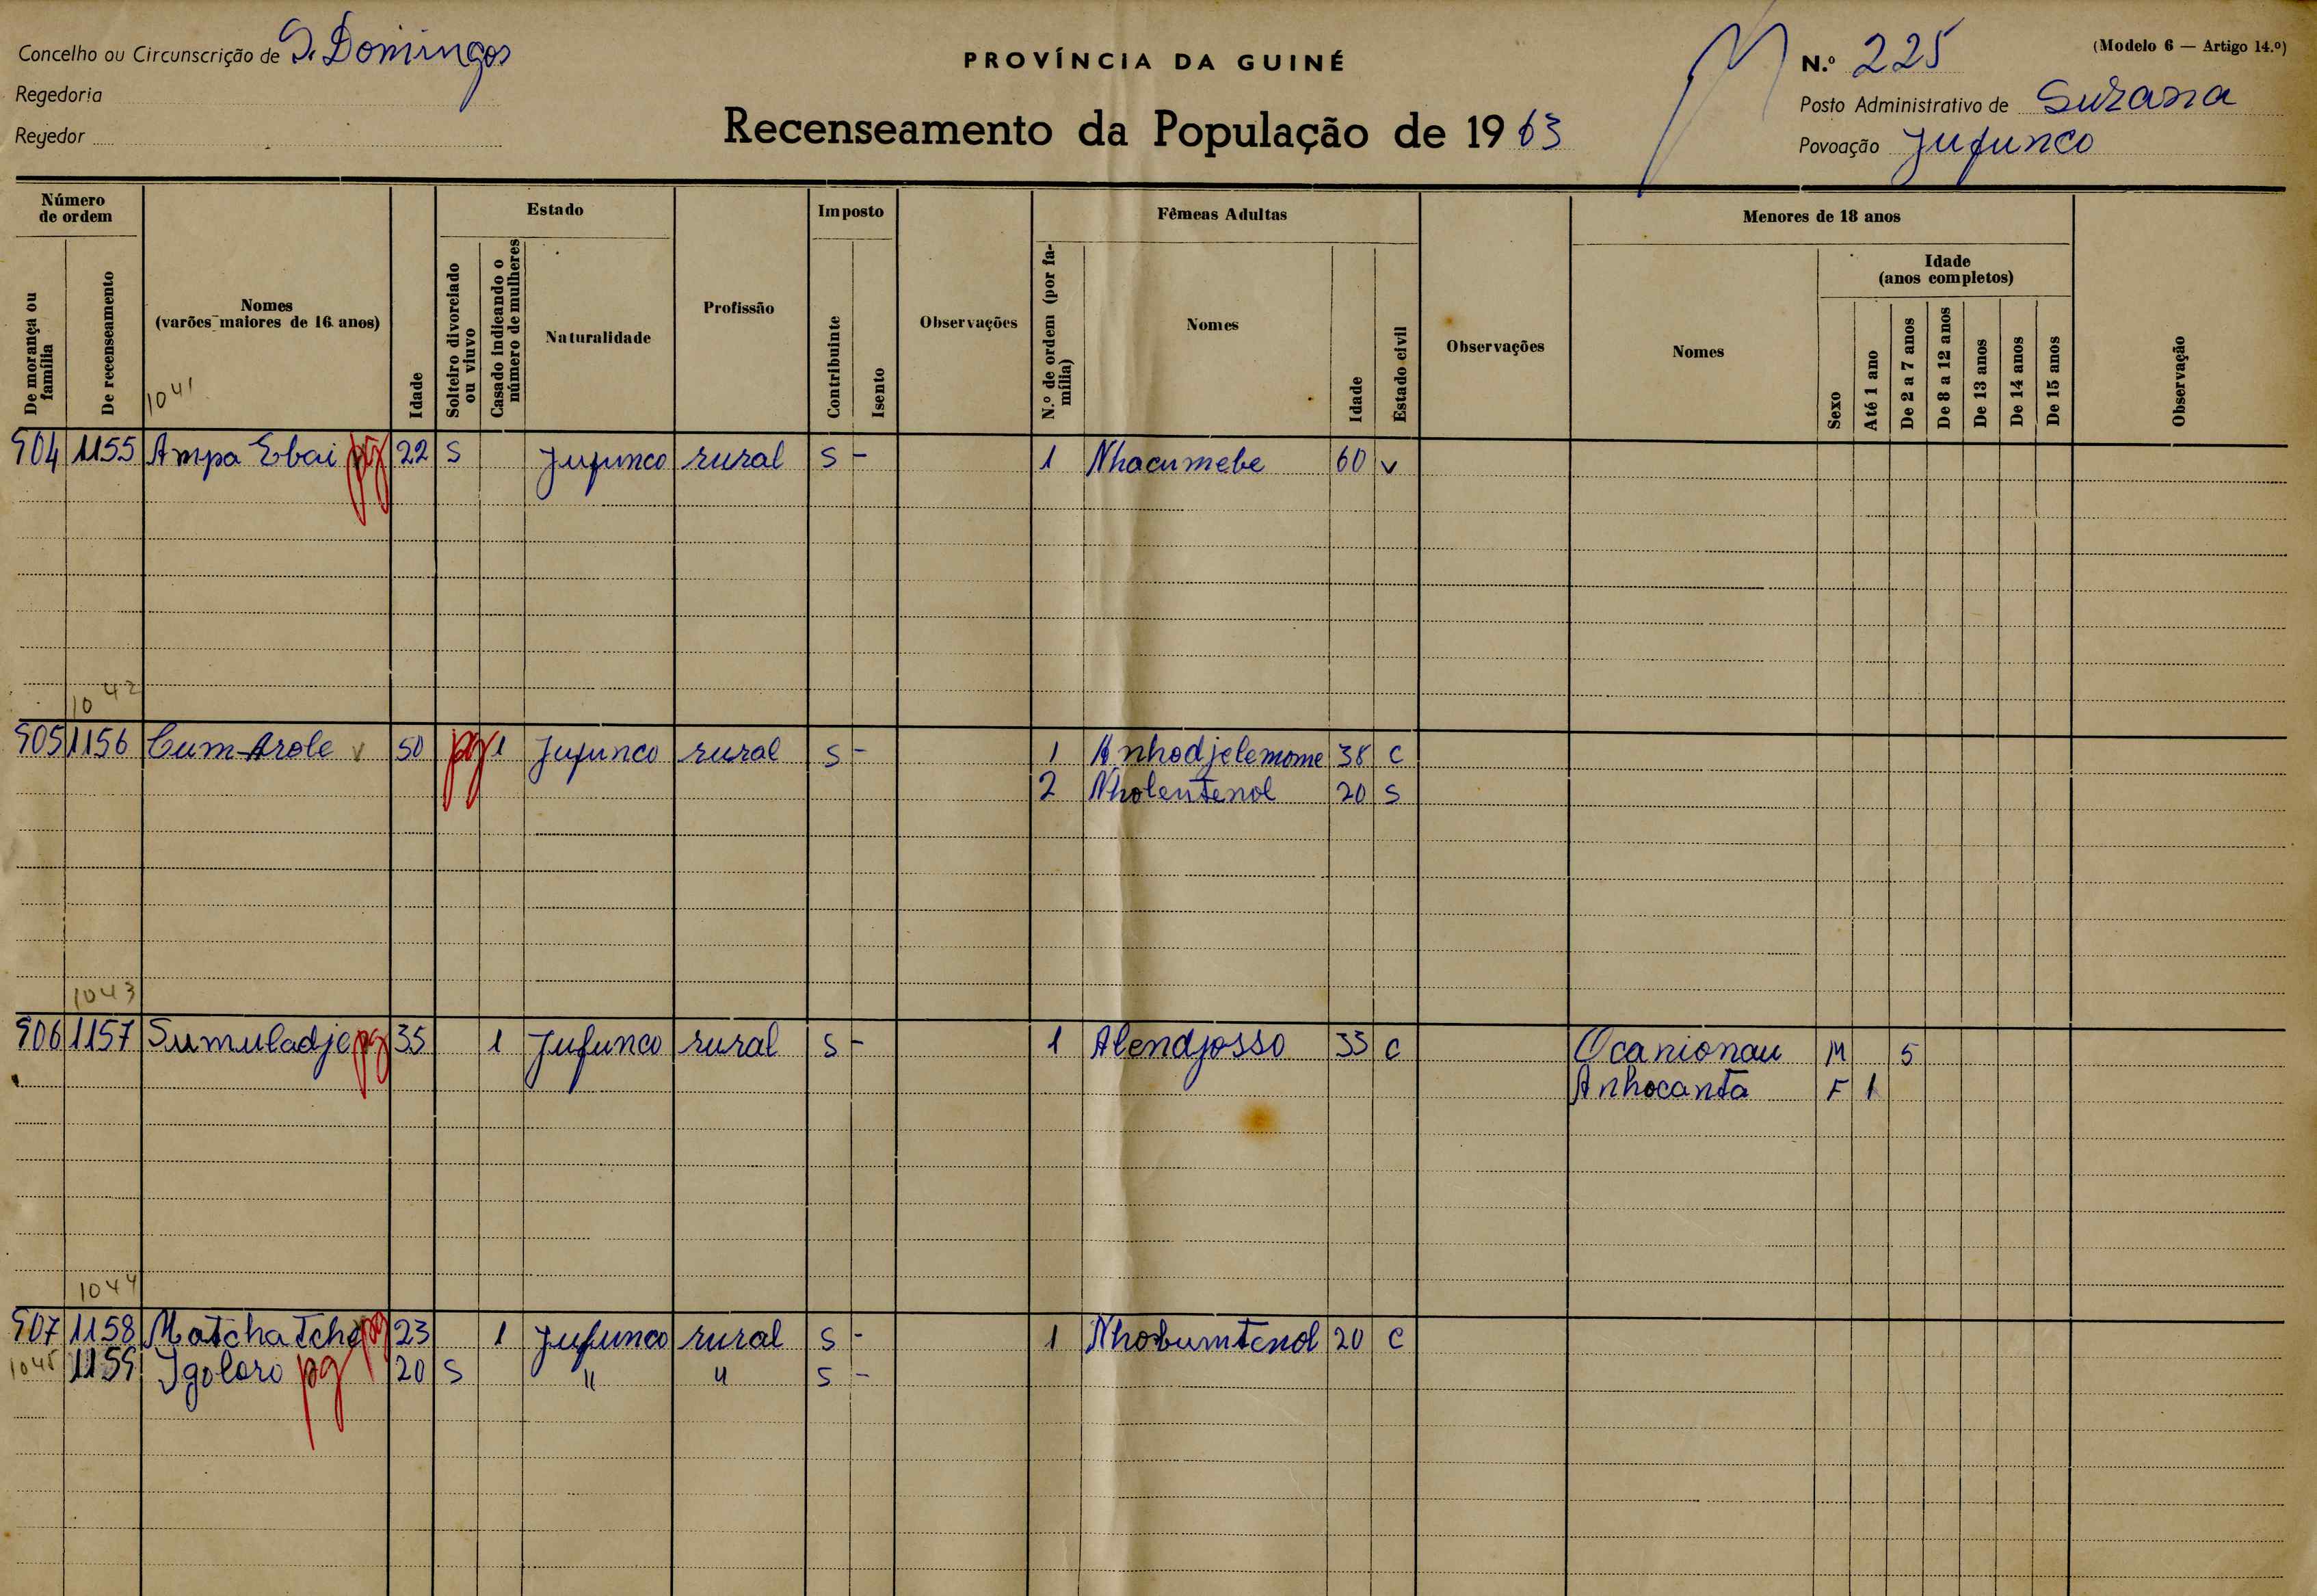 Concelho ou Circunscrição de S. Domingos
PROVÍNCIA DA GUINÉ
N.º 225
(Modelo 6 — Artigo 14.º)
Regedoria
Recenseamento da População de 1963
Posto Administrativo de Suzana
Regedor
Povoação Jufunco
Número de ordem
Estado
Imposto
Fêmeas Adultas
Menores de 18 anos
De morança ou família
De recenseamento
Nomes (varões maiores de 16 anos)
Idade
Solteiro divorciado ou viuvo
Casado indicando o número de mulheres
Naturalidade
Profissão
Contribuinte
Isento
Observações
N.º de ordem (por família)
Nomes
Idade
Estado civil
Observações
Nomes
Sexo
Idade (anos completos)
Até 1 ano
De 2 a 7 anos
De 8 a 12 anos
De 13 anos
De 14 anos
De 15 anos
Observação
1041
904 1155 Ampa Ebai pg 22 S Jufunco rural S - 1 Nhacumebe 60 v
1042
905 1156 Cum-Arole v 50 pg 1 Jufunco rural S - 1 Anhodjelemome 38 C
2 Nholentenol 20 S
1043
906 1157 Sumuladje pg 35 1 Jufunco rural S - 1 Alendjosso 33 C Ocanionau M 5
Anhocanta F 1
1044
907 1158 Matchatche pg 23 1 Jufunco rural S - 1 Nhobumtenol 20 C
1045 1159 Igoloro pg 20 S " " S -